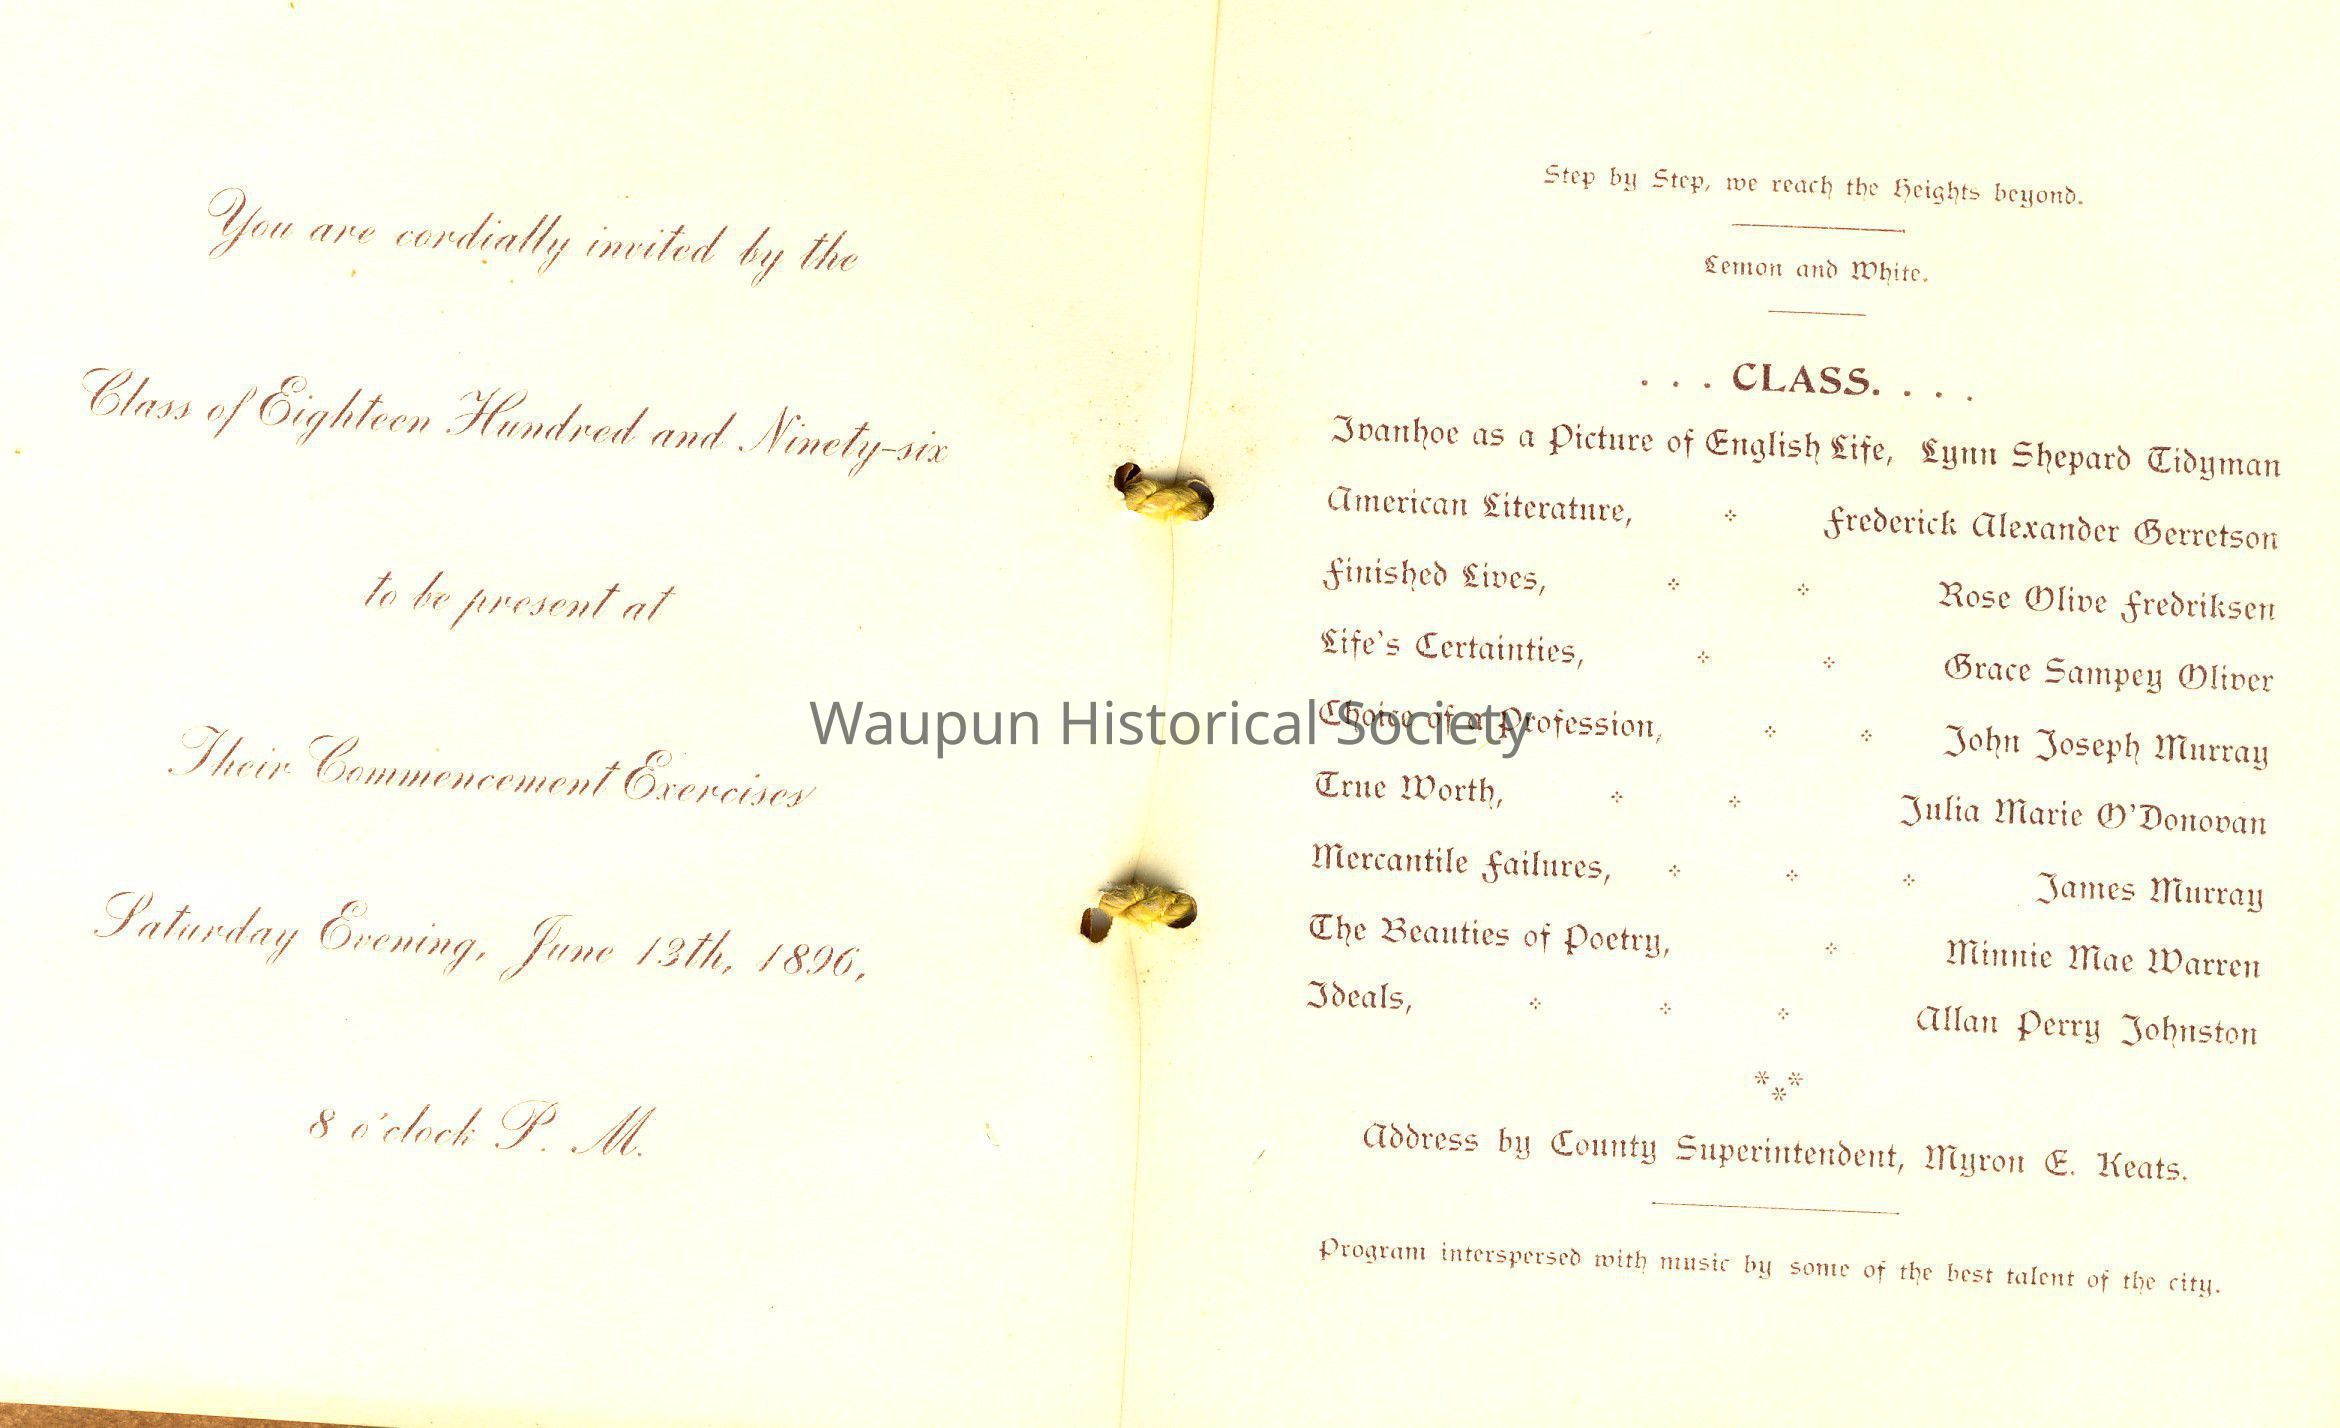 You are cordially invited by the
Class of Eighteen Hundred and Ninety-six
to be present at
Their Commencement Exercises
Saturday Evening, June 13th, 1896,
8 o'clock P. M.
Step by Step, we reach the Heights beyond.
Lemon and White.
. . . CLASS. . . .
Ivanhoe as a Picture of English Life, Lynn Shepard Tidyman
American Literature, Frederick Alexander Gerretson
Finished Lives, Rose Olive Fredriksen
Life's Certainties, Grace Sampey Oliver
Choice of a Profession, John Joseph Murray
True Worth, Julia Marie O'Donovan
Mercantile Failures, James Murray
The Beauties of Poetry, Minnie Mae Warren
Ideals, Allan Perry Johnston
Address by County Superintendent, Myron E. Keats.
Program interspersed with music by some of the best talent of the city.
Waupun Historical Society